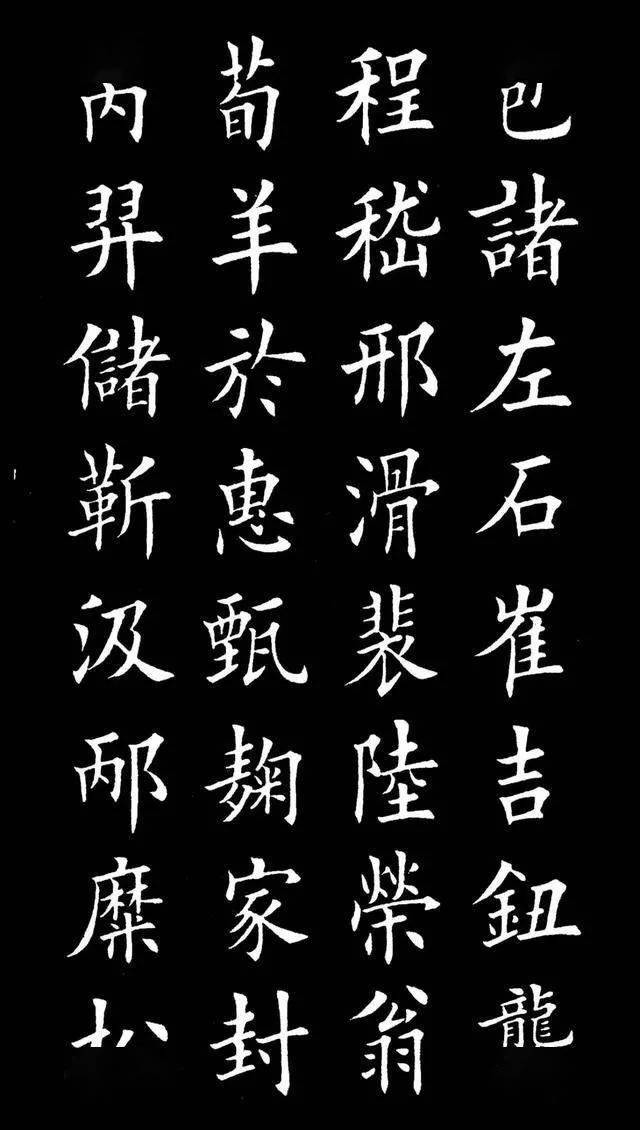 巴諸左石崔吉鈕龍
程嵇邢滑裴陸榮翁
荀羊於惠甄麴家封
内羿儲靳汲邴糜